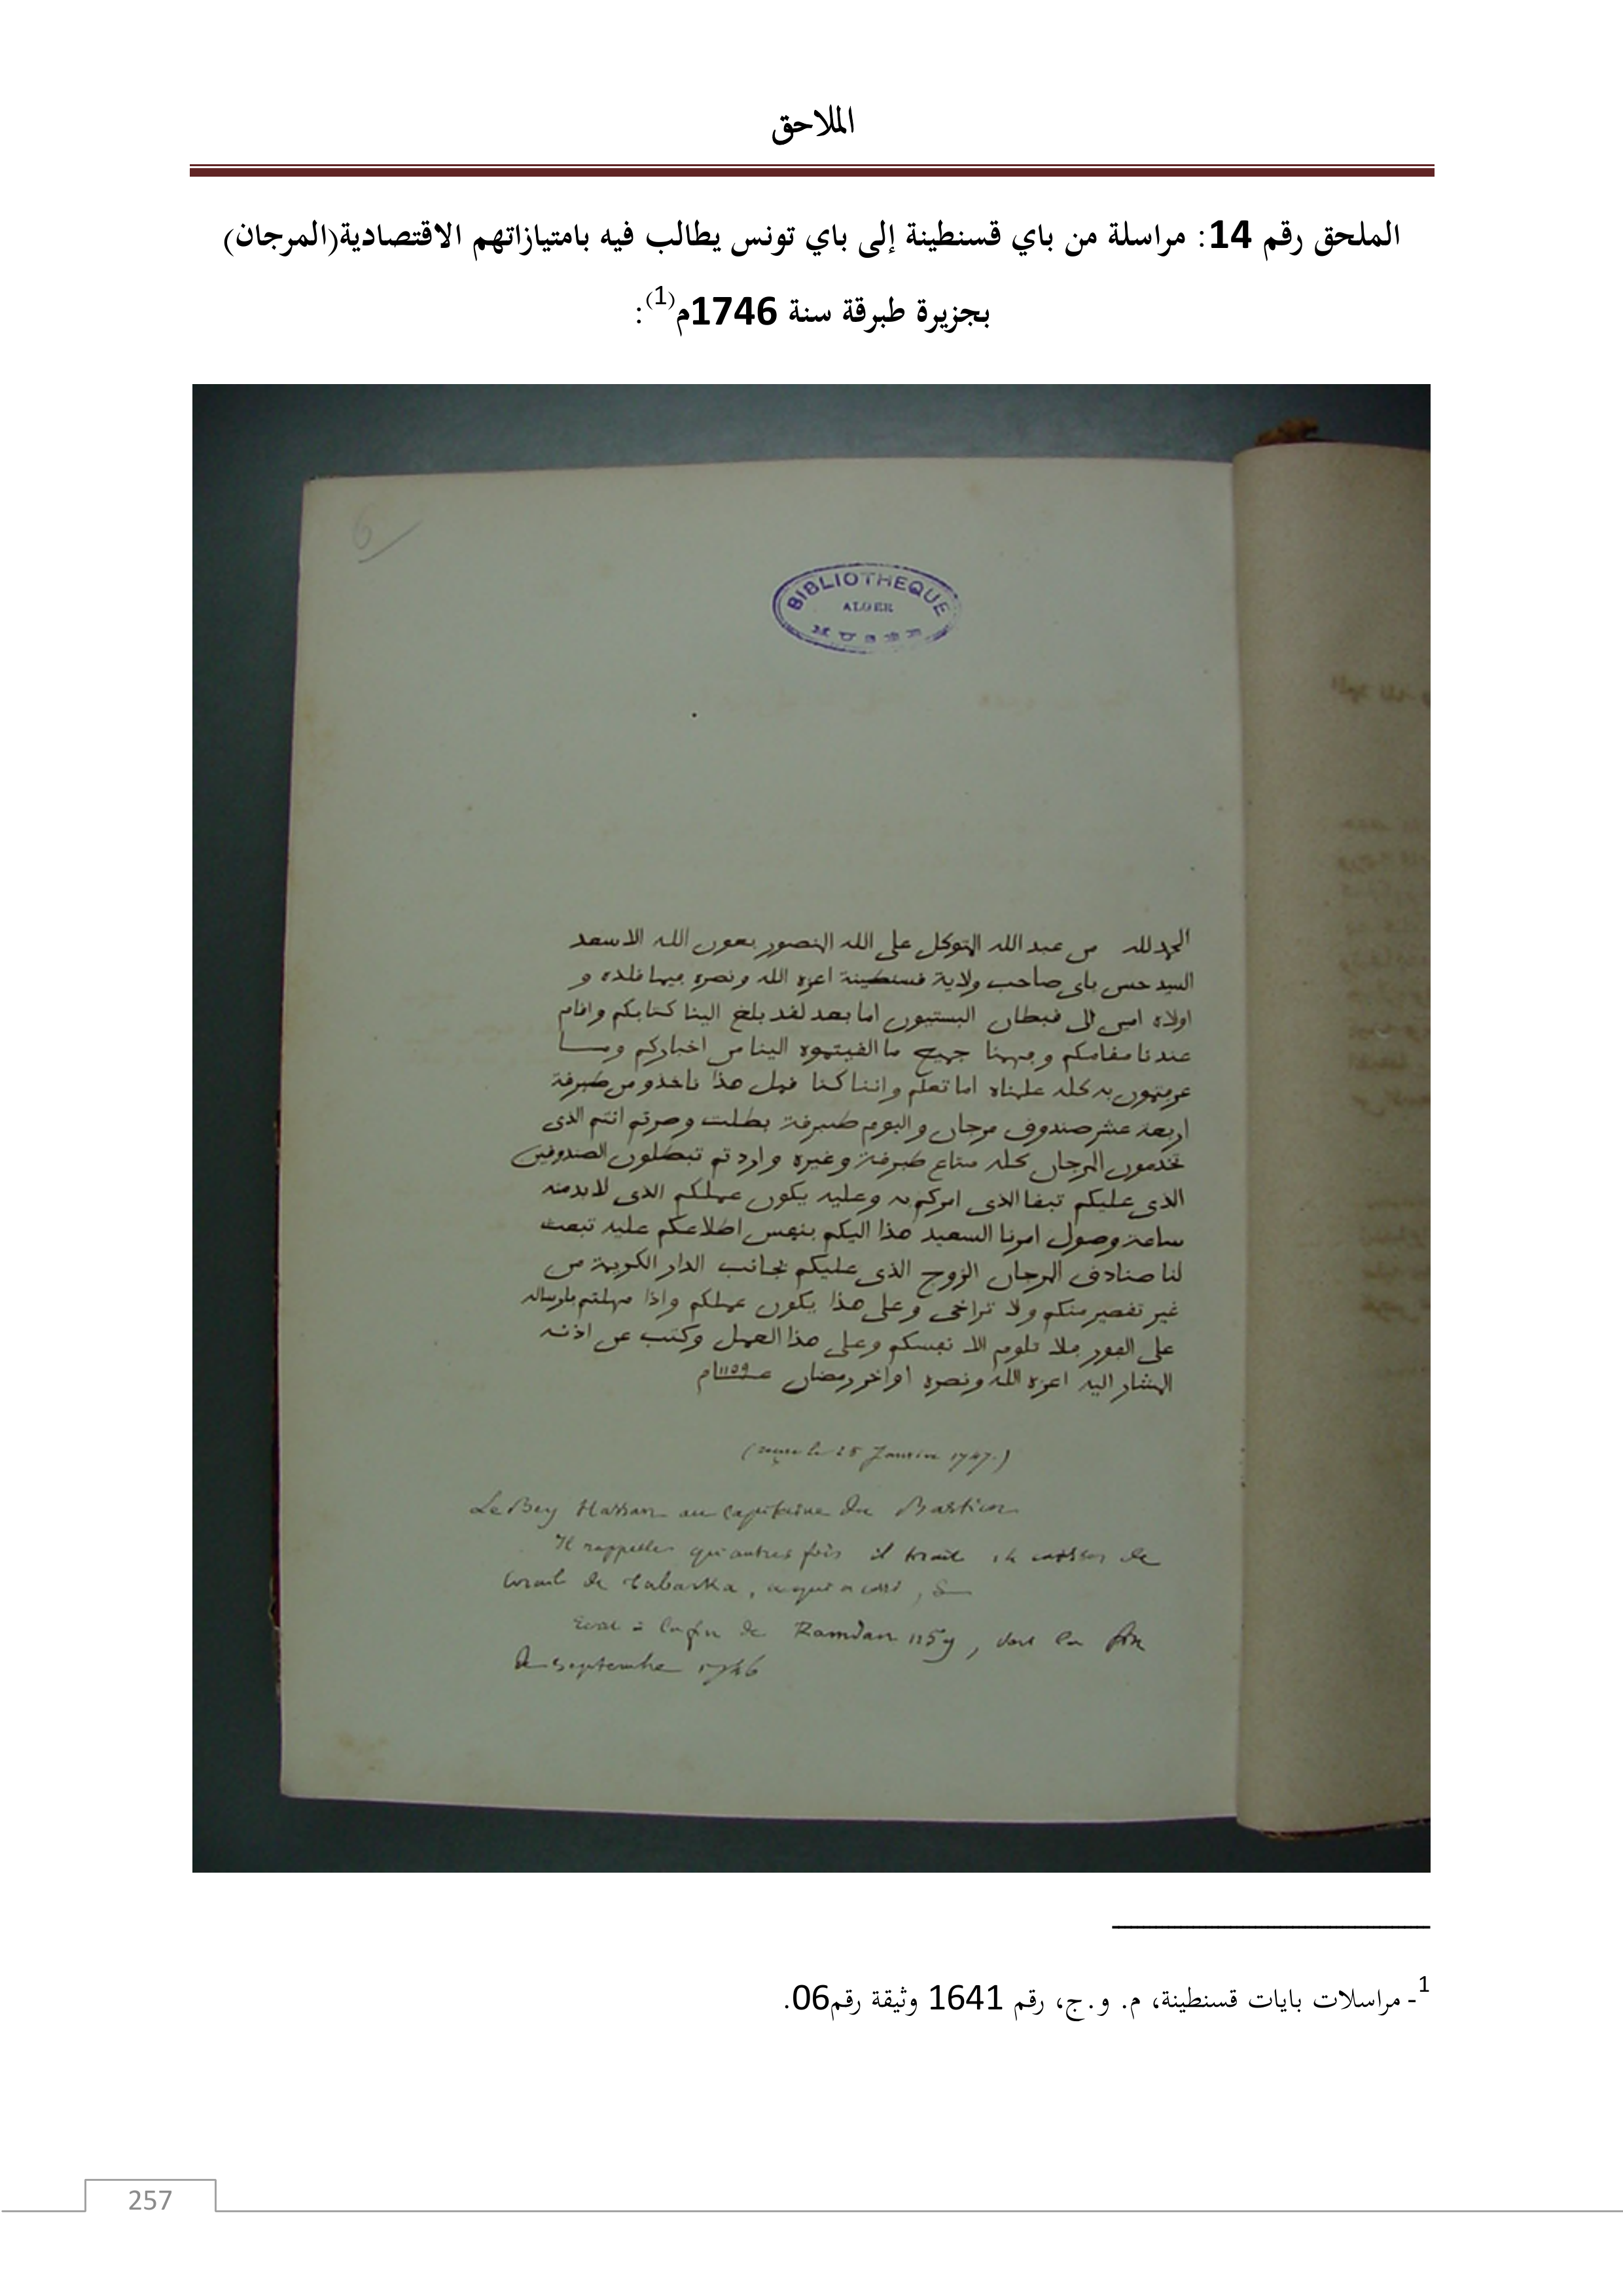 الملاحق
الملحق رقم 14: مراسلة من باي قسنطينة إلى باي تونس يطالب فيه بامتيازاتهم الاقتصادية(المرجان)
بجزيرة طبرقة سنة 1746م(1):
6
BIBLIOTHEQUE
ALGER
MUSEE
الحمد لله من عبد الله المتوكل على الله المنصور بعون الله الاسعد
السيد حسن باي صاحب ولاية قسنطينة اعزه الله ونصره فيما قلده و
اولاه امين الى قبطان البستيون اما بعد لقد بلغ الينا كتابكم واقام
عندنا مقامكم وفهمنا جميع ما الفيتموه الينا من اخباركم وما
عرفتمون به كله علمناه اما تعلم واننا كنا قبل هذا ناخذو من طبرقة
اربعة عشر صندوق مرجان واليوم طبرقة بطلت وصرتم انتم الذي
تخدمون المرجان كله متاع طبرقة وغيره واردتم تبطلون الصندوقين
الذي عليكم تبقا الذي امركم به وعليه يكون عملكم الذي لا بد منه
ساعة وصول امرنا السعيد هذا اليكم بنفس اطلاعكم عليه تبعث
لنا صنادق المرجان الزوج الذي عليكم لجانب الدار الكريمة من
غير تقصير منكم ولا تراخى وعلى هذا يكون عملكم واذا مهلتم بارساله
على الفور فلا تلوم الا نفسكم وعلى هذا العمل وكتب عن اذنه
المشار اليه اعزه الله ونصره اواخر رمضان عام 1159
(reçue le 28 Janvier 1747.)
Le Bey Hassan au Capitaine du Bastion
Il rappelle qu'autrefois il tirait 14 caisses de
Corail de Tabarka, ce qui a cessé, &
Ecrit à la fin de Ramdan 1159, vers la fin
de septembre 1746
1- مراسلات بايات قسنطينة، م. و.ج، رقم 1641 وثيقة رقم06.
257